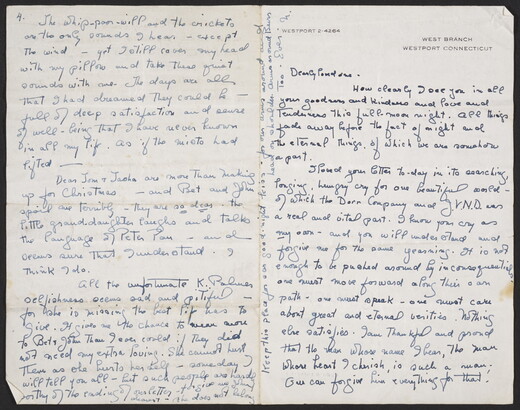 4.
The whip-poor-will and the crickets
are the only sounds I hear - except
the wind - yet I still cover my head
with my pillow and take these quiet
sounds with me. The days are all
that I had dreamed they could be -
full of deep satisfaction and sense
of well-being that I have never known
in all my life. As if the mists had
lifted -
Dear Jim & Jacka are more than making
up for Christmas - and Bet and John
spoil me terribly - they are so dear. The
little granddaughter laughs and talks
the language of Peter Pan - and
seems sure that I understand. I
think I do.
All the unfortunate K. Palmer
selfishness seems sad and pitiful -
for she is missing the best life has to
give. It gives me the chance to mean more
to Bet & John than I ever could if they did
not need my extra loving. She cannot hurt
them as she hurts herself - someday I
will tell you all - but such people are hardly
worthy of the ending of our letter - forgive me
she does not belong
WESTPORT 2-4264
WEST BRANCH
WESTPORT CONNECTICUT
Dearly loved one.
How clearly I see you in all
your goodness and kindness and love and
tenderness this full moon night. All things
fade away before the fact of night and
the eternal things, of which we are somehow
a part.
I loved your letter to-day in its searching,
longing, hungry cry for one beautiful world -
of which the Dorn Company and J.V.N.D. was
a real and vital part. I know your cry as
my own - and you will understand and
forgive me for the same yearning. It is not
enough to be pushed around by inconsequentials
one must move forward along their own
path - one must speak - one must care
about great and eternal verities. Nothing
else satisfies. I am thankful and proud
that the man whose name I bear, the man
whose heart I cherish, is such a man.
One can forgive him everything for that.
Keep this place for our good night kiss, for our arms around